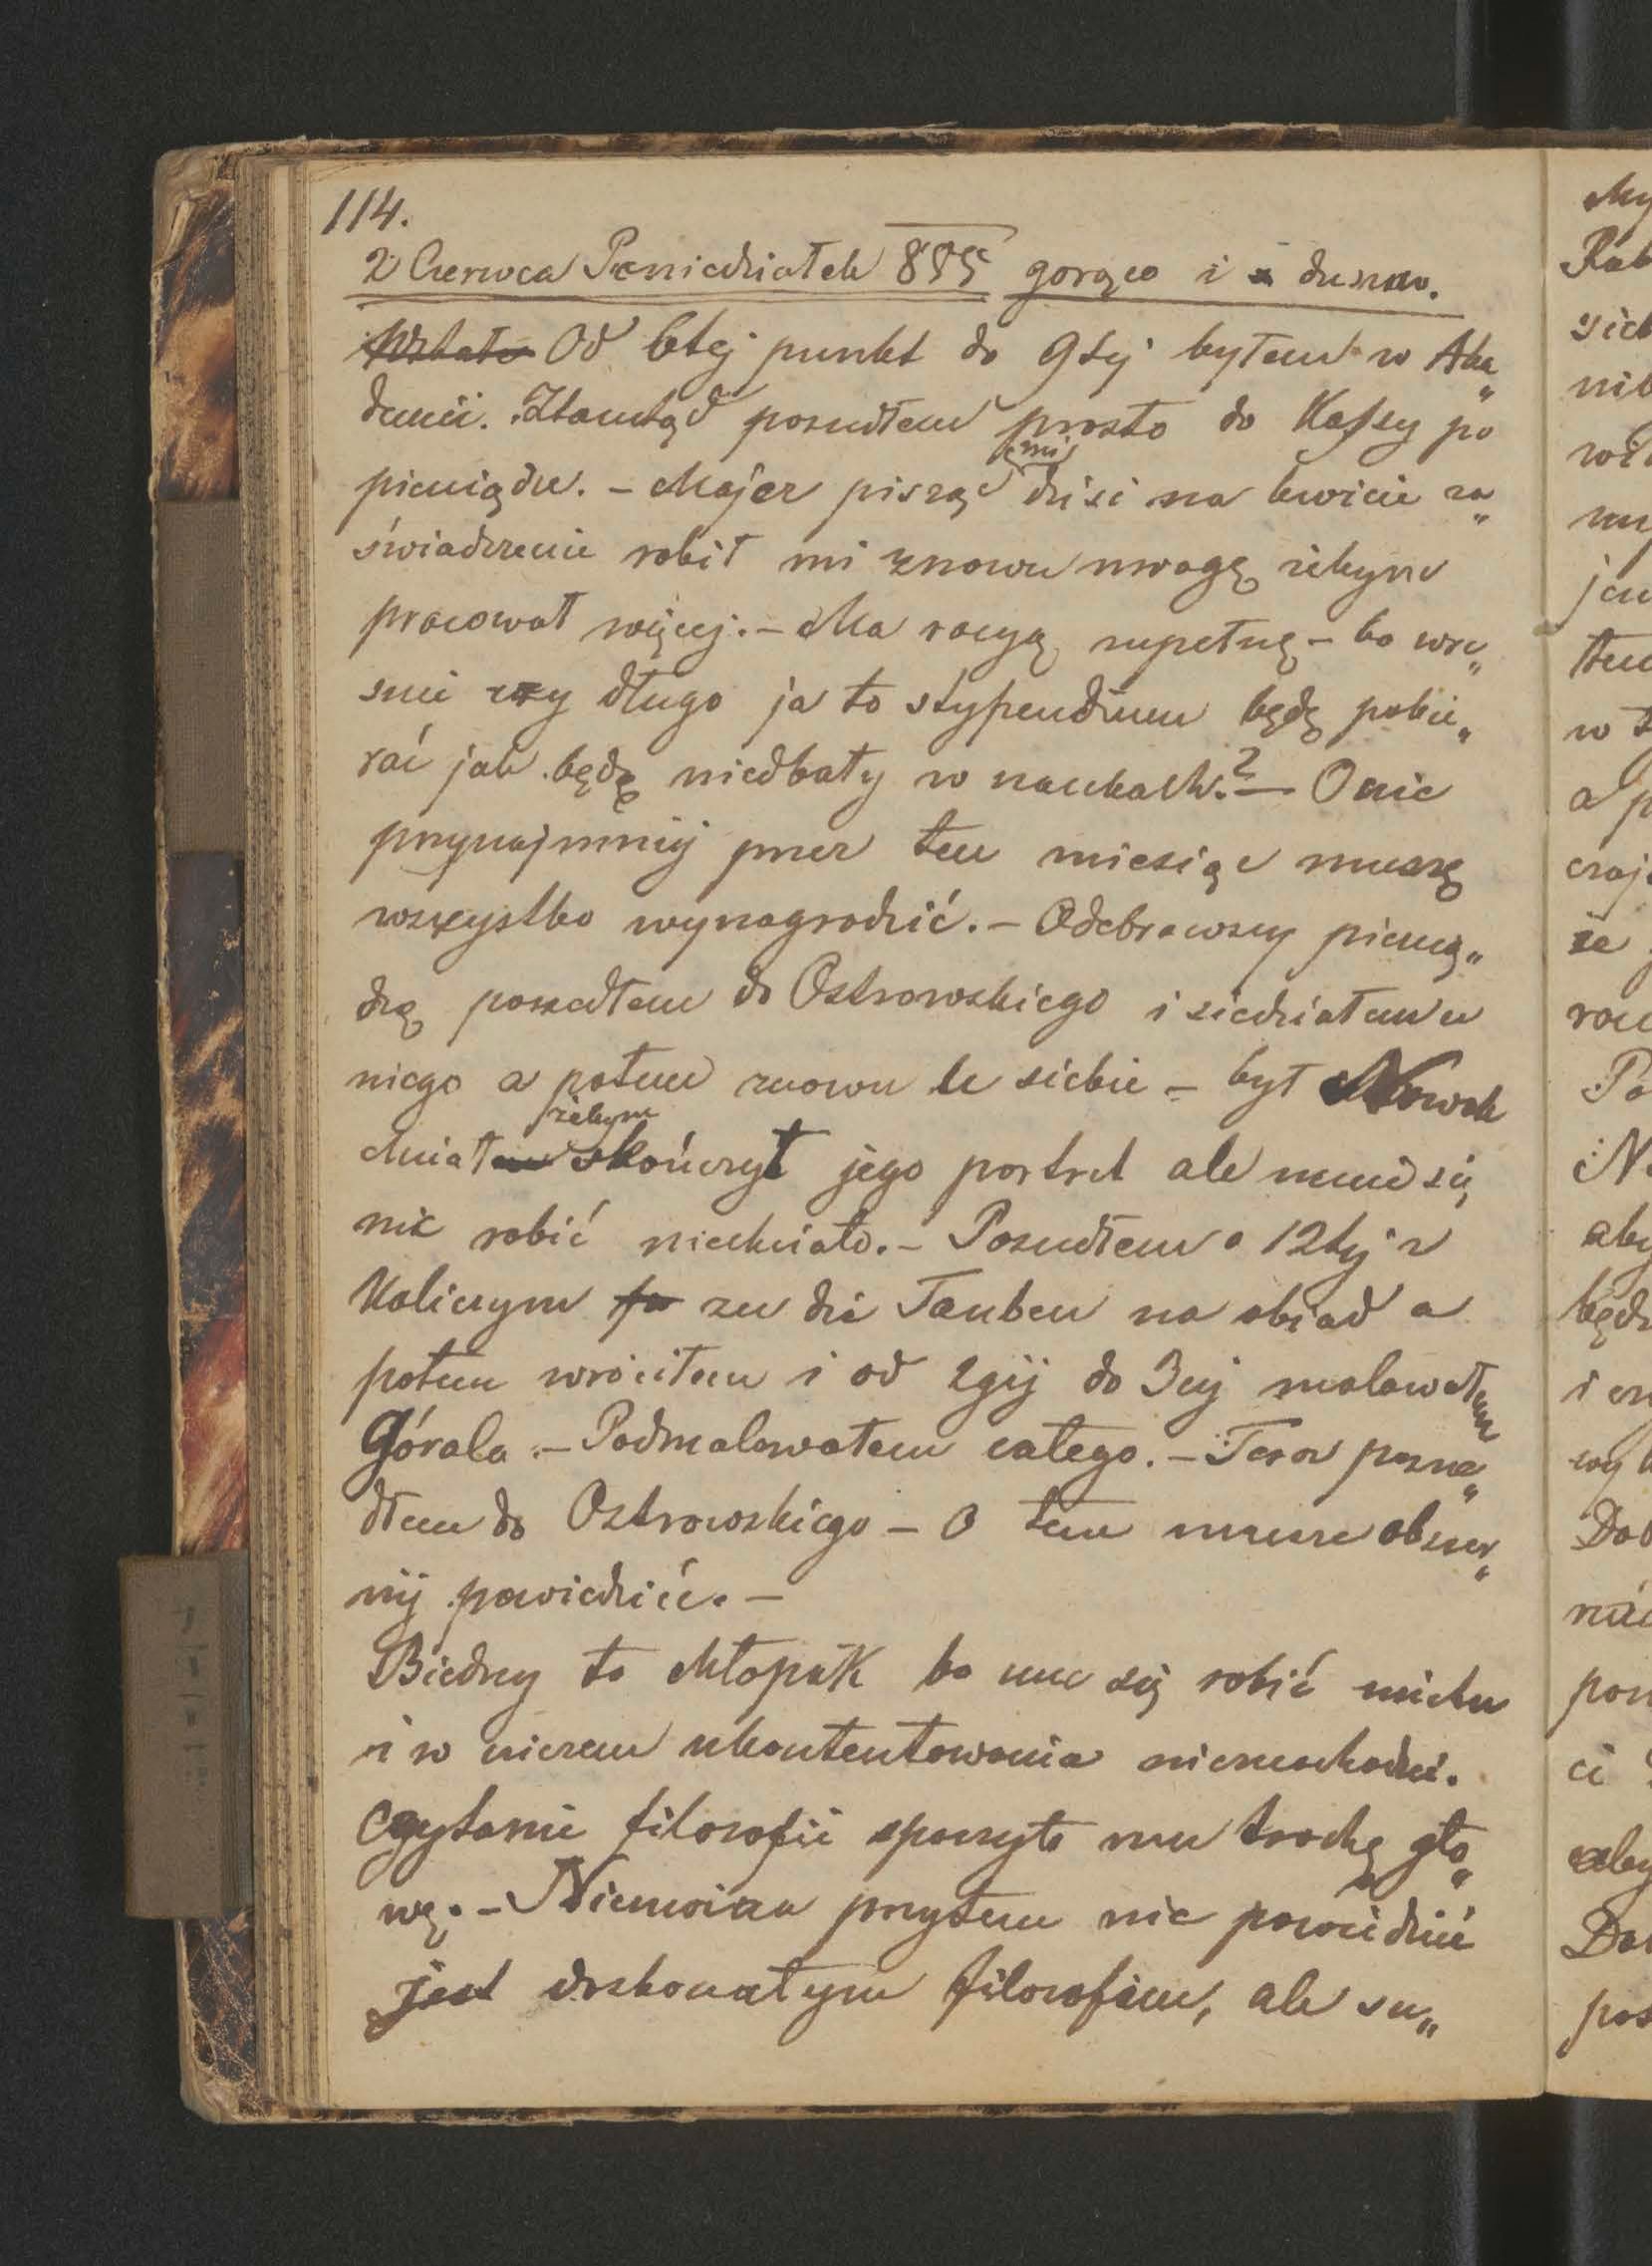 114.
2 Czerwca Poniedziałek 855 gorąco i duszno.
Wstałe Od 6tej punkt do 9tej byłem w Aka„
demii. Ztamtąd poszedłem prosto do Kassy po
pieniądze. – Majer pisząc mi dziś na kwicie za„
świadczenie robił mi znowu uwagę żebym
pracował więcej. – Ma racyą zupełną – bo wre„
szcie czy długo ja to stypendium będę pobie„
rać jak będę niedbały w naukach.? – O nie
przynajmniej przez ten miesiąc muszę
wszystko wynagrodzić. – Odebrawszy pienią„
dze poszedłem do Ostrowskiego i siedziałem u
niego a potem znowu u siebie – był Nowak
chciał żebym skończył jego portret ale mnie się
nic robić niechciało. – Poszedłem o 12tej z
Kaliczym zu die Tauben na obiad a
potem wróciłem i od 2giej do 3ciej malowałem
Górala. – Podmalowałem całego. – Teraz posze„
dłem do Ostrowskiego – O tem muszę obszer„
niej powiedzieć. –
Biedny to chłopak bo mu się robić niechce
i w niczem ukontentowania nieznachodzi.
Czytanie filozofii spaczyło mu trochę gło„
wę. – Niemożna przytem nic powiedzieć
jest doskonałym filozofem, ale su„
My
Po
N
aby